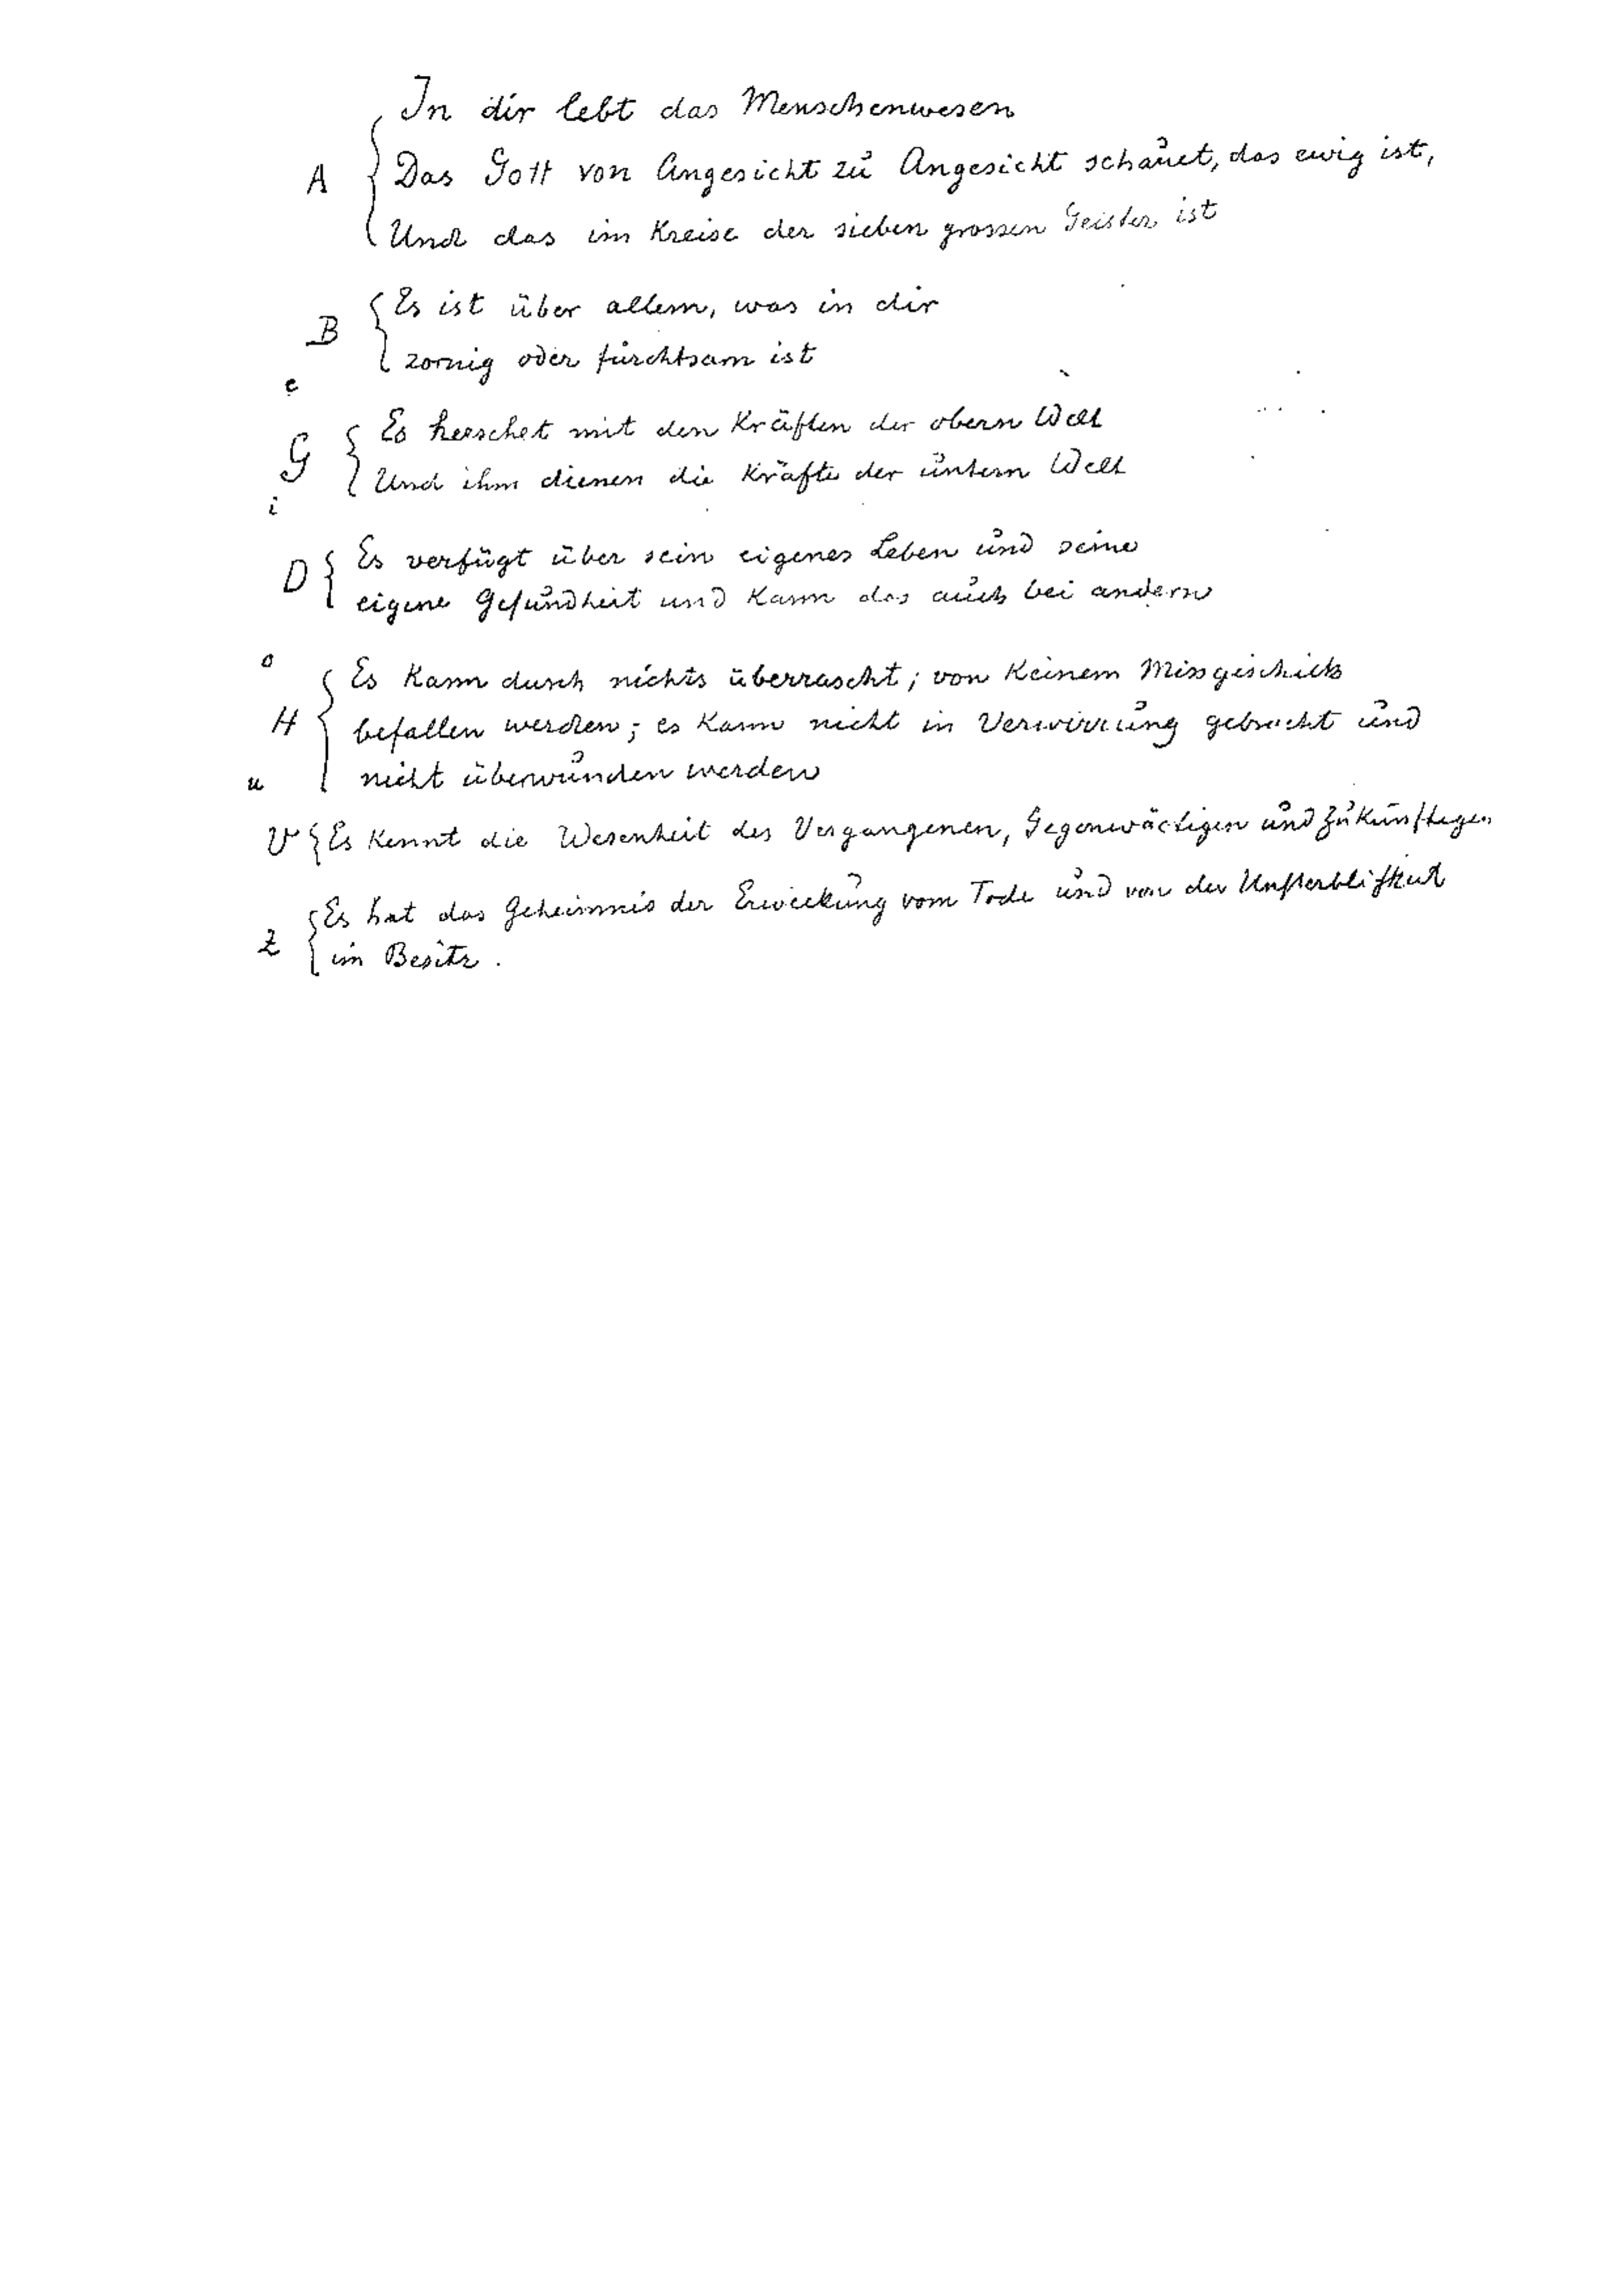 In dir lebt das Menschenwesen
A { Das Gott von Angesicht zu Angesicht schauet, das ewig ist,
Und das im Kreise der sieben grossen Geister ist
Es ist über allem, was in dir
B { zornig oder furchtsam ist
e
Es herrschet mit den Kräften der obern Welt
G { Und ihm dienen die Kräfte der untern Welt
i
D { Es verfügt über sein eigenes Leben und seine
eigene Gesundheit und kann das auch bei andern
o
Es kann durch nichts überrascht; von keinem Missgeschick
H { befallen werden; es kann nicht in Verwirrung gebracht und
u nicht überwunden werden
V { Es kennt die Wesenheit des Vergangenen, Gegenwärtigen und Zukünftigen
Es hat das Geheimnis der Erweckung vom Tode und von der Unsterblichkeit
Z { im Besitz .